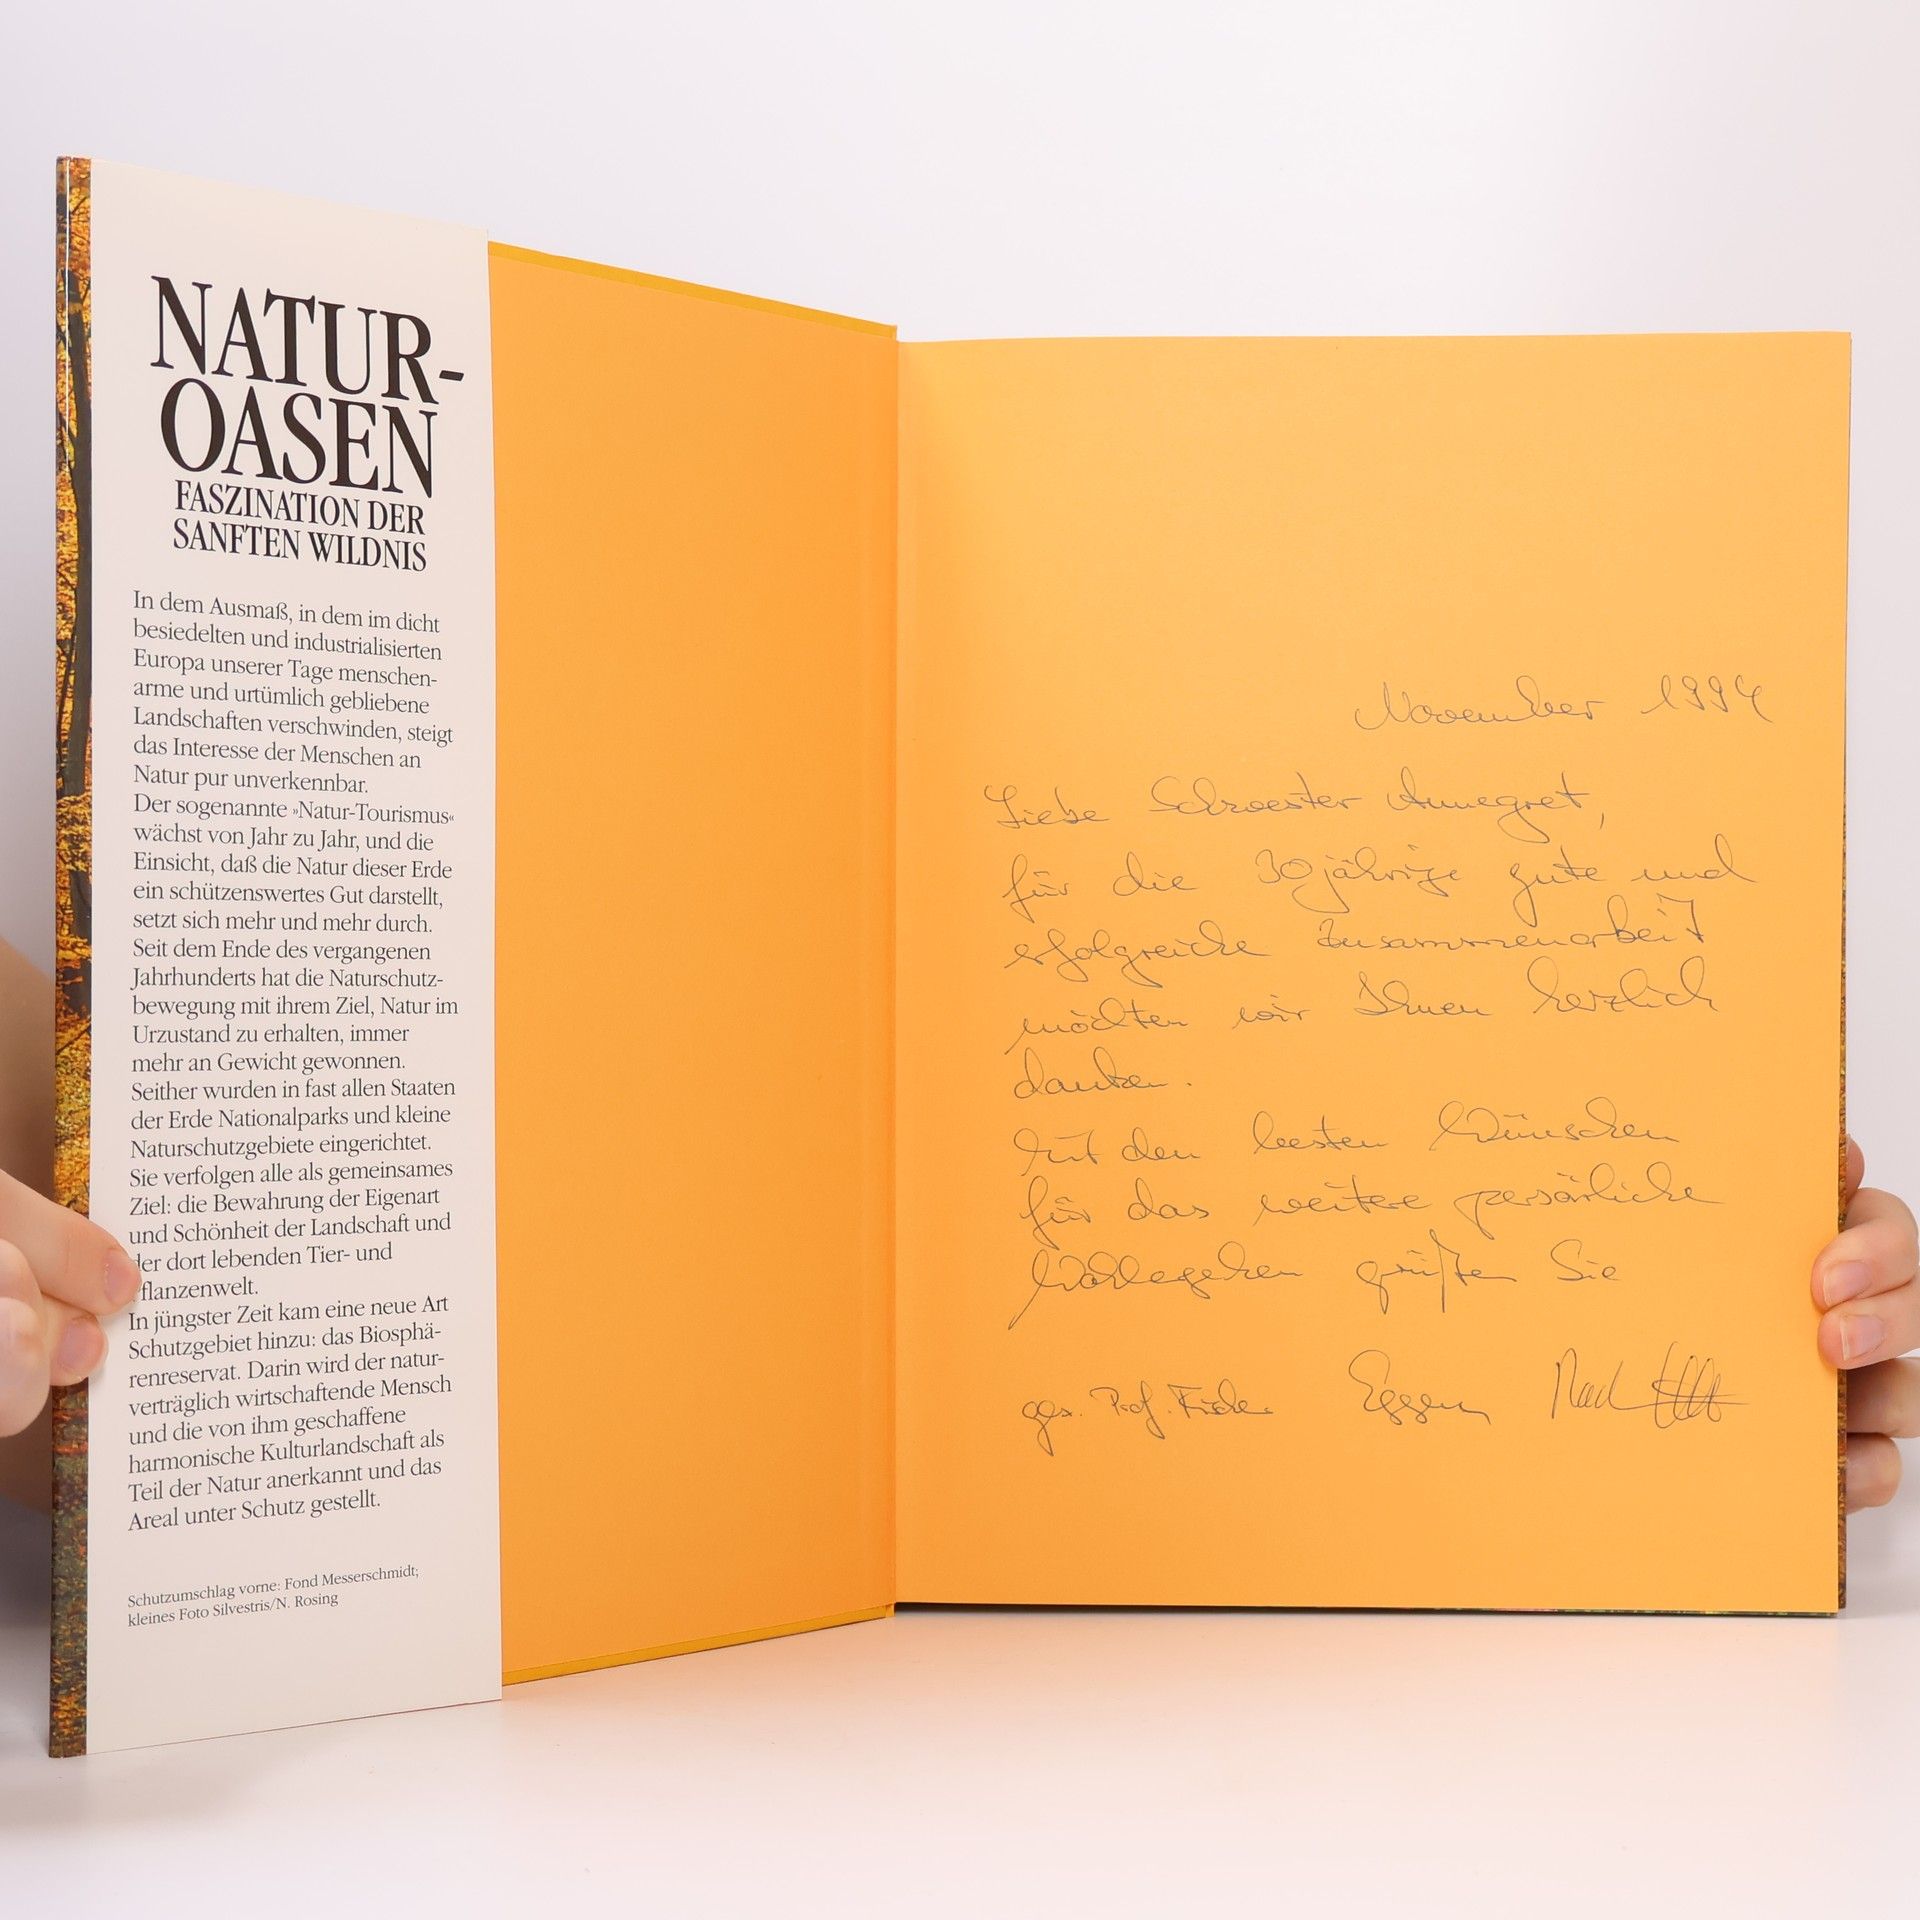 NATUR-
OASEN
FASZINATION DER
SANFTEN WILDNIS
In dem Ausmaß, in dem im dicht
besiedelten und industrialisierten
Europa unserer Tage menschen-
arme und urtümlich gebliebene
Landschaften verschwinden, steigt
das Interesse der Menschen an
Natur pur unverkennbar.
Der sogenannte »Natur-Tourismus«
wächst von Jahr zu Jahr, und die
Einsicht, daß die Natur dieser Erde
ein schützenswertes Gut darstellt,
setzt sich mehr und mehr durch.
Seit dem Ende des vergangenen
Jahrhunderts hat die Naturschutz-
bewegung mit ihrem Ziel, Natur im
Urzustand zu erhalten, immer
mehr an Gewicht gewonnen.
Seither wurden in fast allen Staaten
der Erde Nationalparks und kleine
Naturschutzgebiete eingerichtet.
Sie verfolgen alle als gemeinsames
Ziel: die Bewahrung der Eigenart
und Schönheit der Landschaft und
der dort lebenden Tier- und
Pflanzenwelt.
In jüngster Zeit kam eine neue Art
Schutzgebiet hinzu: das Biosphä-
renreservat. Darin wird der natur-
verträglich wirtschaftende Mensch
und die von ihm geschaffene
harmonische Kulturlandschaft als
Teil der Natur anerkannt und das
Areal unter Schutz gestellt.
Schutzumschlag vorne: Fond Messerschmidt;
kleines Foto Silvestris/N. Rosing
November 1994
Liebe Schwester Annegret,
für die 30jährige gute und
erfolgreiche Zusammenarbeit
möchten wir Ihnen herzlich
danken.
Mit den besten Wünschen
für das weitere persönliche
Wohlergehen grüßen Sie
gez. Prof.